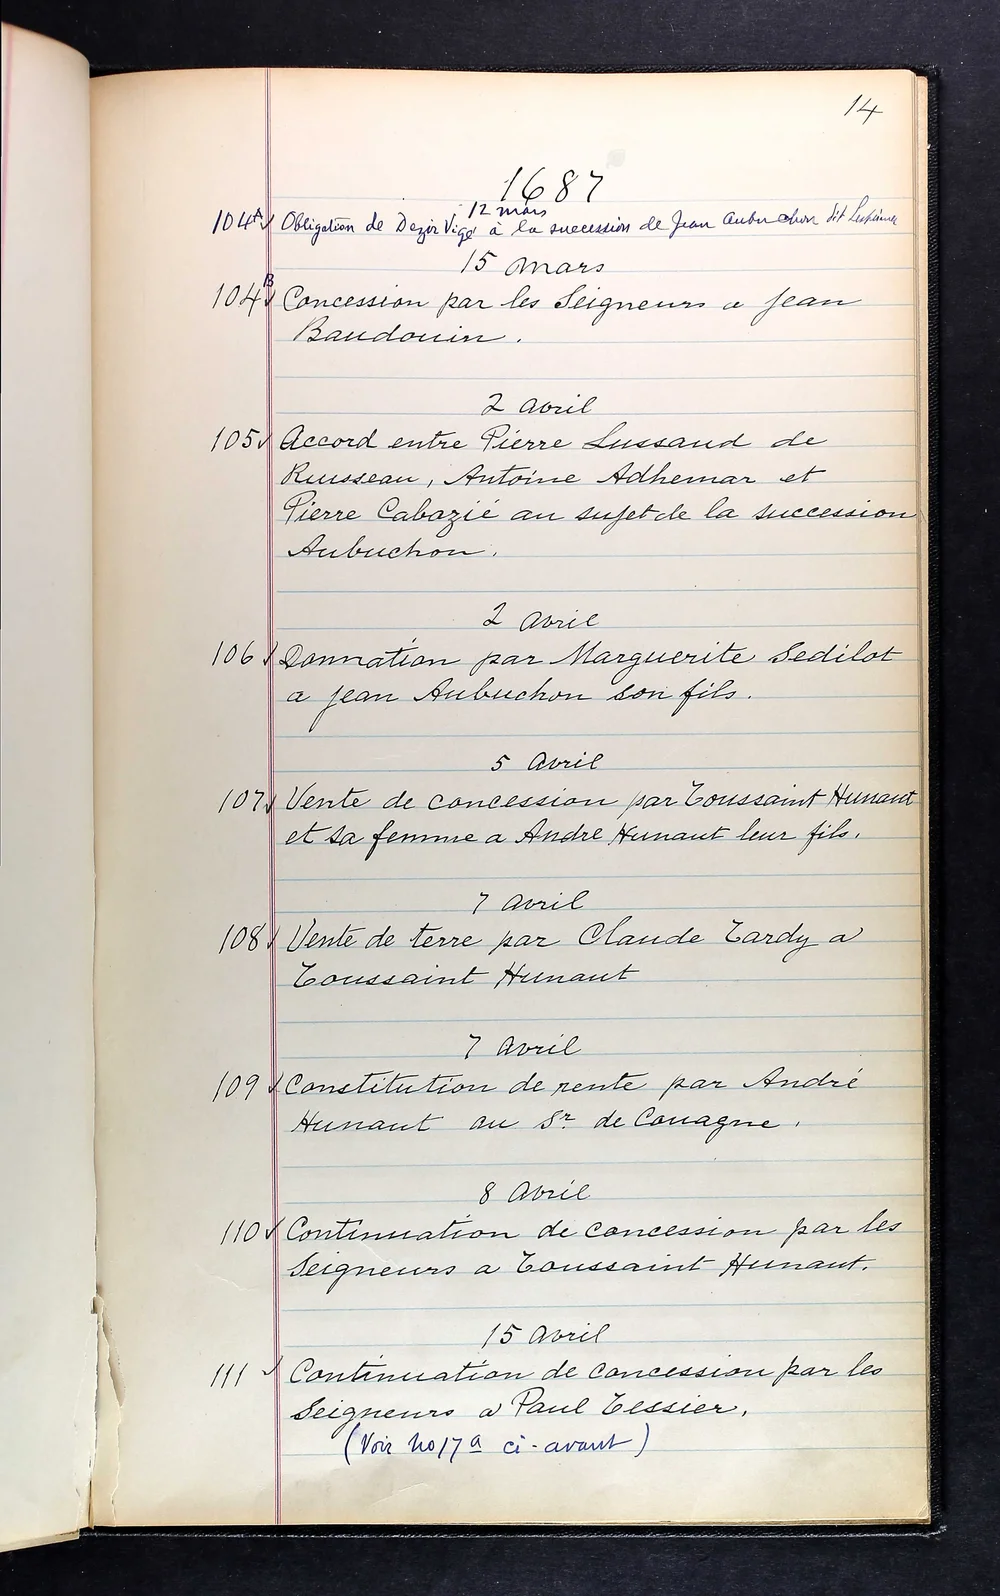 14
1687
12 mars
104A✓ Obligation de Dezir Vigé à la succession de Jean Aubuchon dit
15 Mars
104B✓ Concession par les Seigneurs a Jean
Baudouin.
2 Avril
105✓ Accord entre Pierre Lussaud de
Ruisseau, Antoine Adhemar et
Pierre Cabazié au sujet de la succession
Aubuchon.
2 Avril
106✓ Donnation par Marguerite Sedilot
a Jean Aubuchon son fils.
5 Avril
107✓ Vente de concession par Toussaint Hunaut
et sa femme a Andre Hunaut leur fils.
7 Avril
108✓ Vente de terre par Claude Tardy a
Toussaint Hunaut
7 Avril
109✓ Constitution de rente par André
Hunaut au Sr. de Couagne.
8 Avril
110✓ Continuation de concession par les
Seigneurs a Toussaint Hunaut.
15 Avril
111✓ Continuation de concession par les
Seigneurs a Paul Tessier.
(Voir No 17a ci-avant)